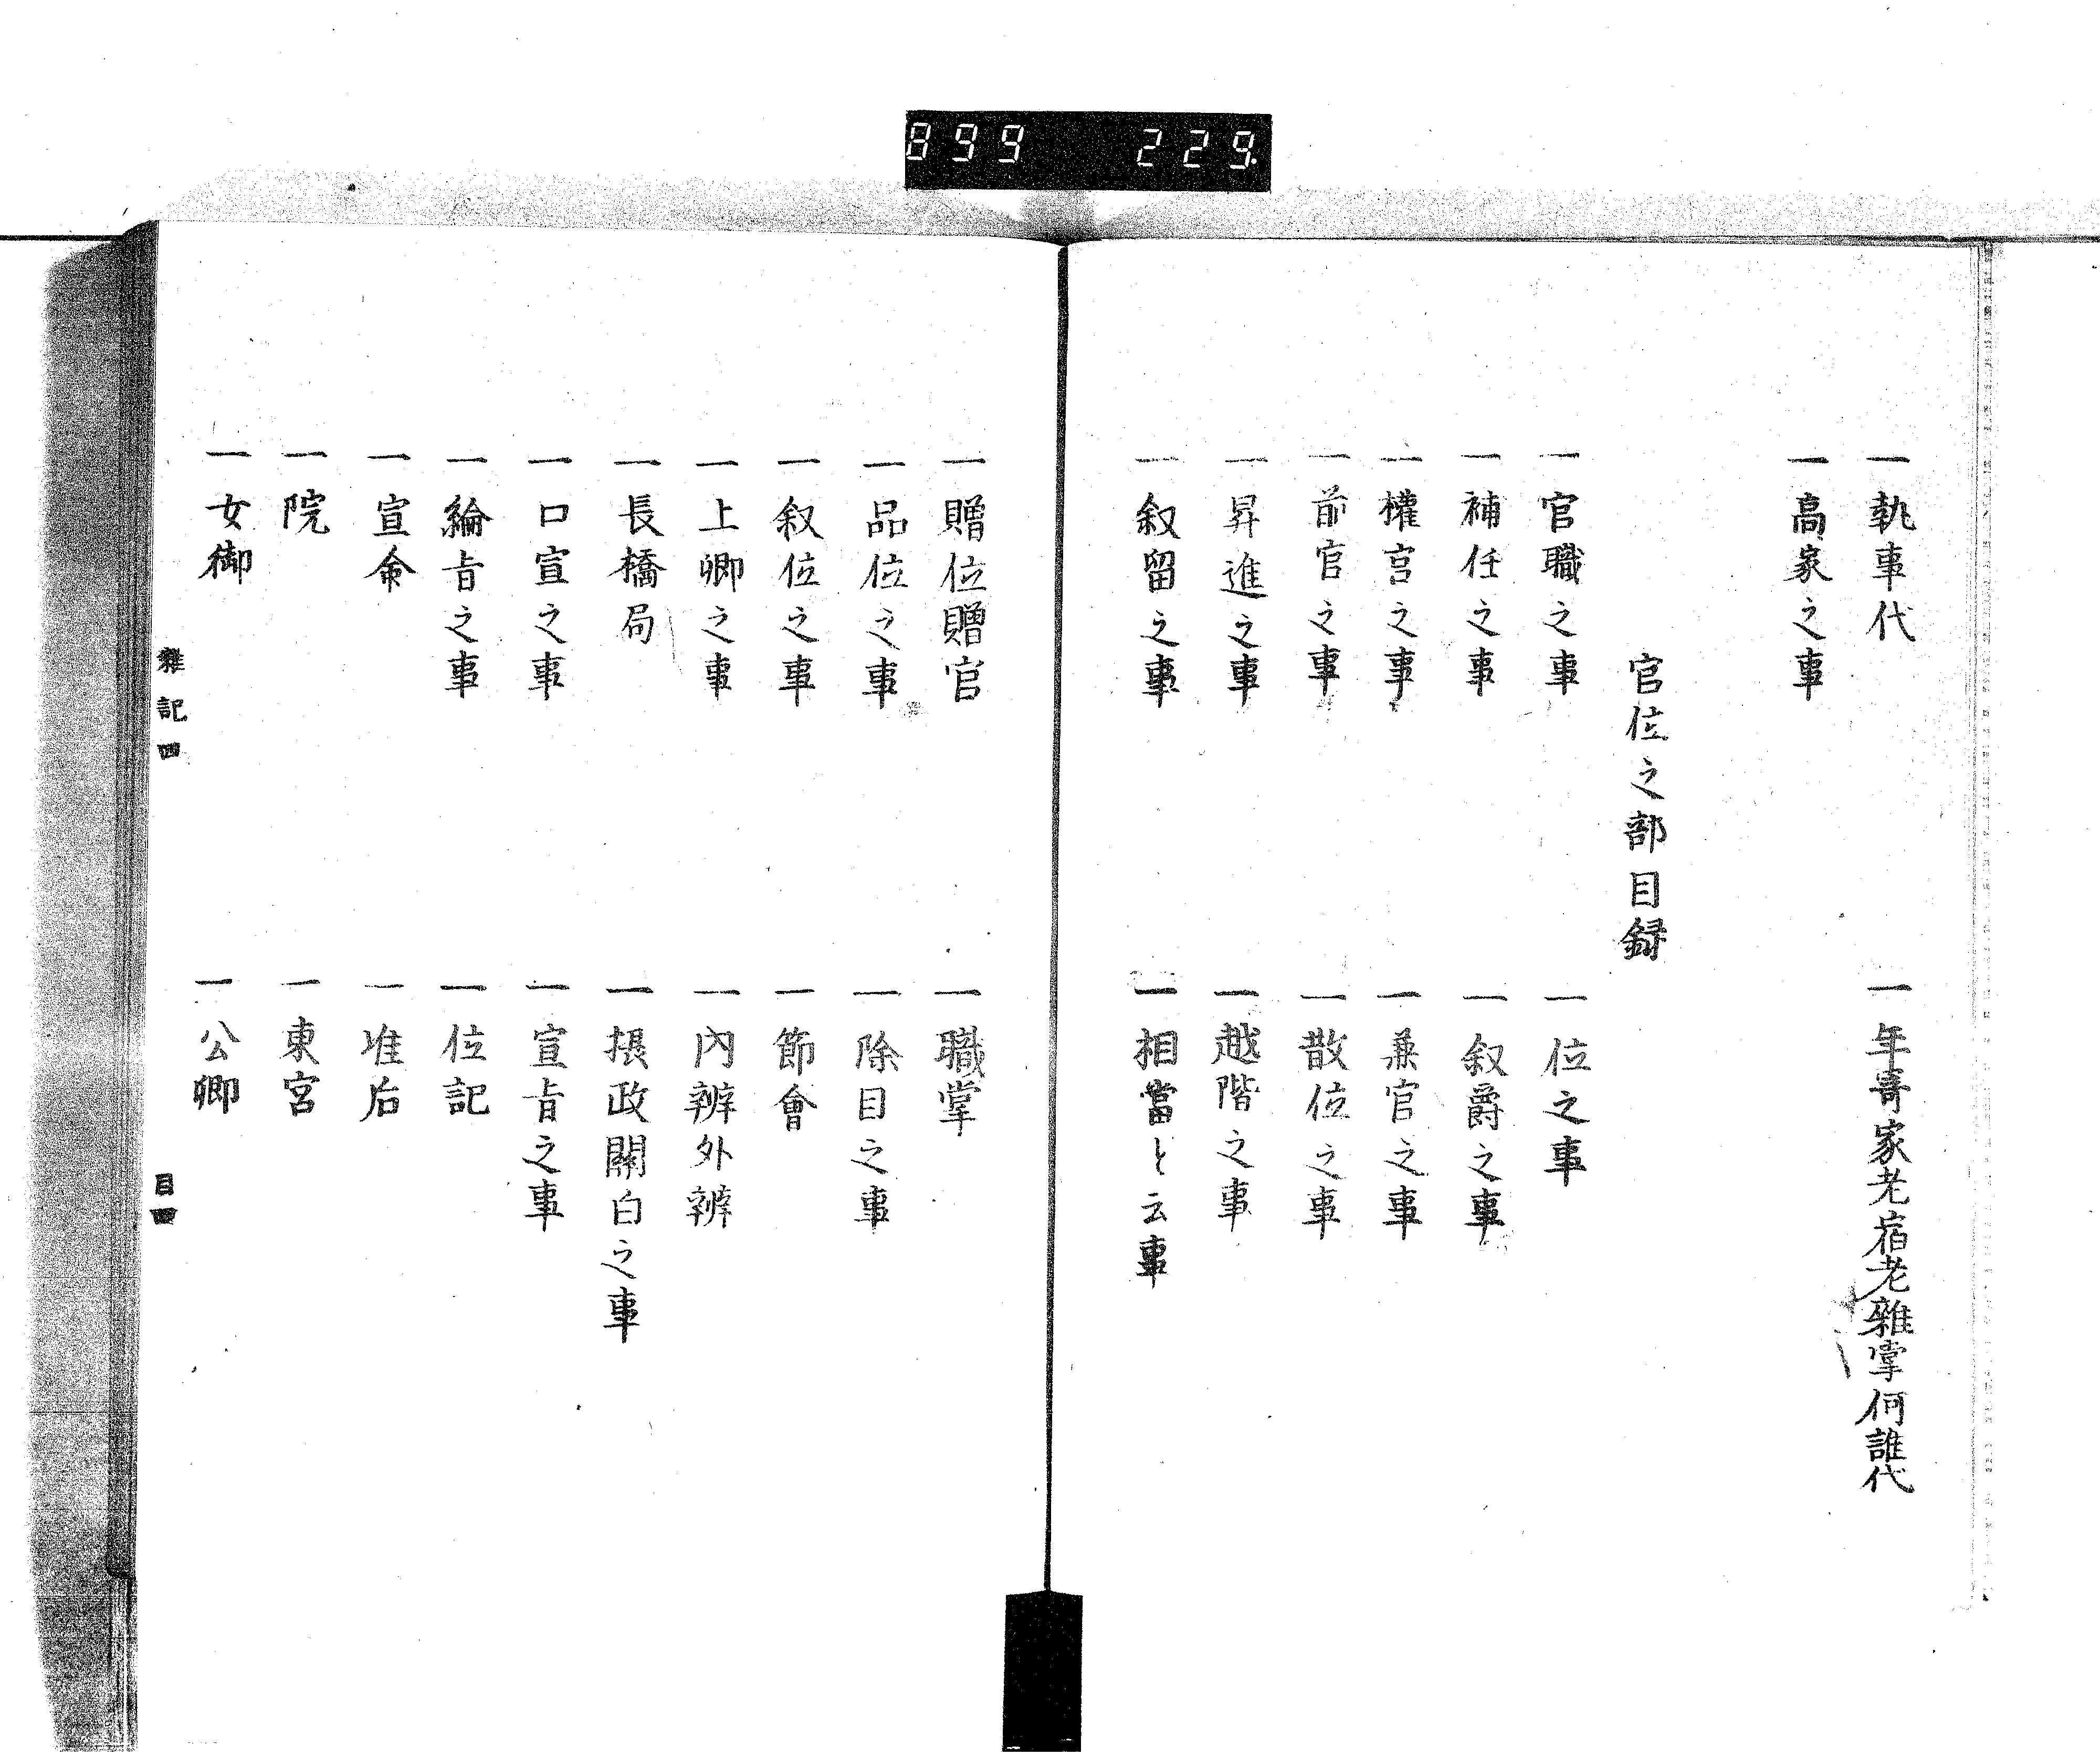 899 229
一執事代
一年寄家老宿老雜掌何誰代
一高家之事
官位之部目録
一官職之事
一位之事
一補任之事
一叙爵之事
一權官之事
一兼官之事
一前官之事
一散位之事
一昇進之事
一越階之事
一叙留之事
一相當と云事
一贈位贈官
一職掌
一品位之事
一除目之事
一叙位之事
一節會
一上卿之事
一內辨外辨
一長橋局
一摂政關白之事
一口宣之事
一宣旨之事
一綸旨之事
一位記
一宣命
一准后
一院
一東宮
一女御
一公卿
雜記四
目四